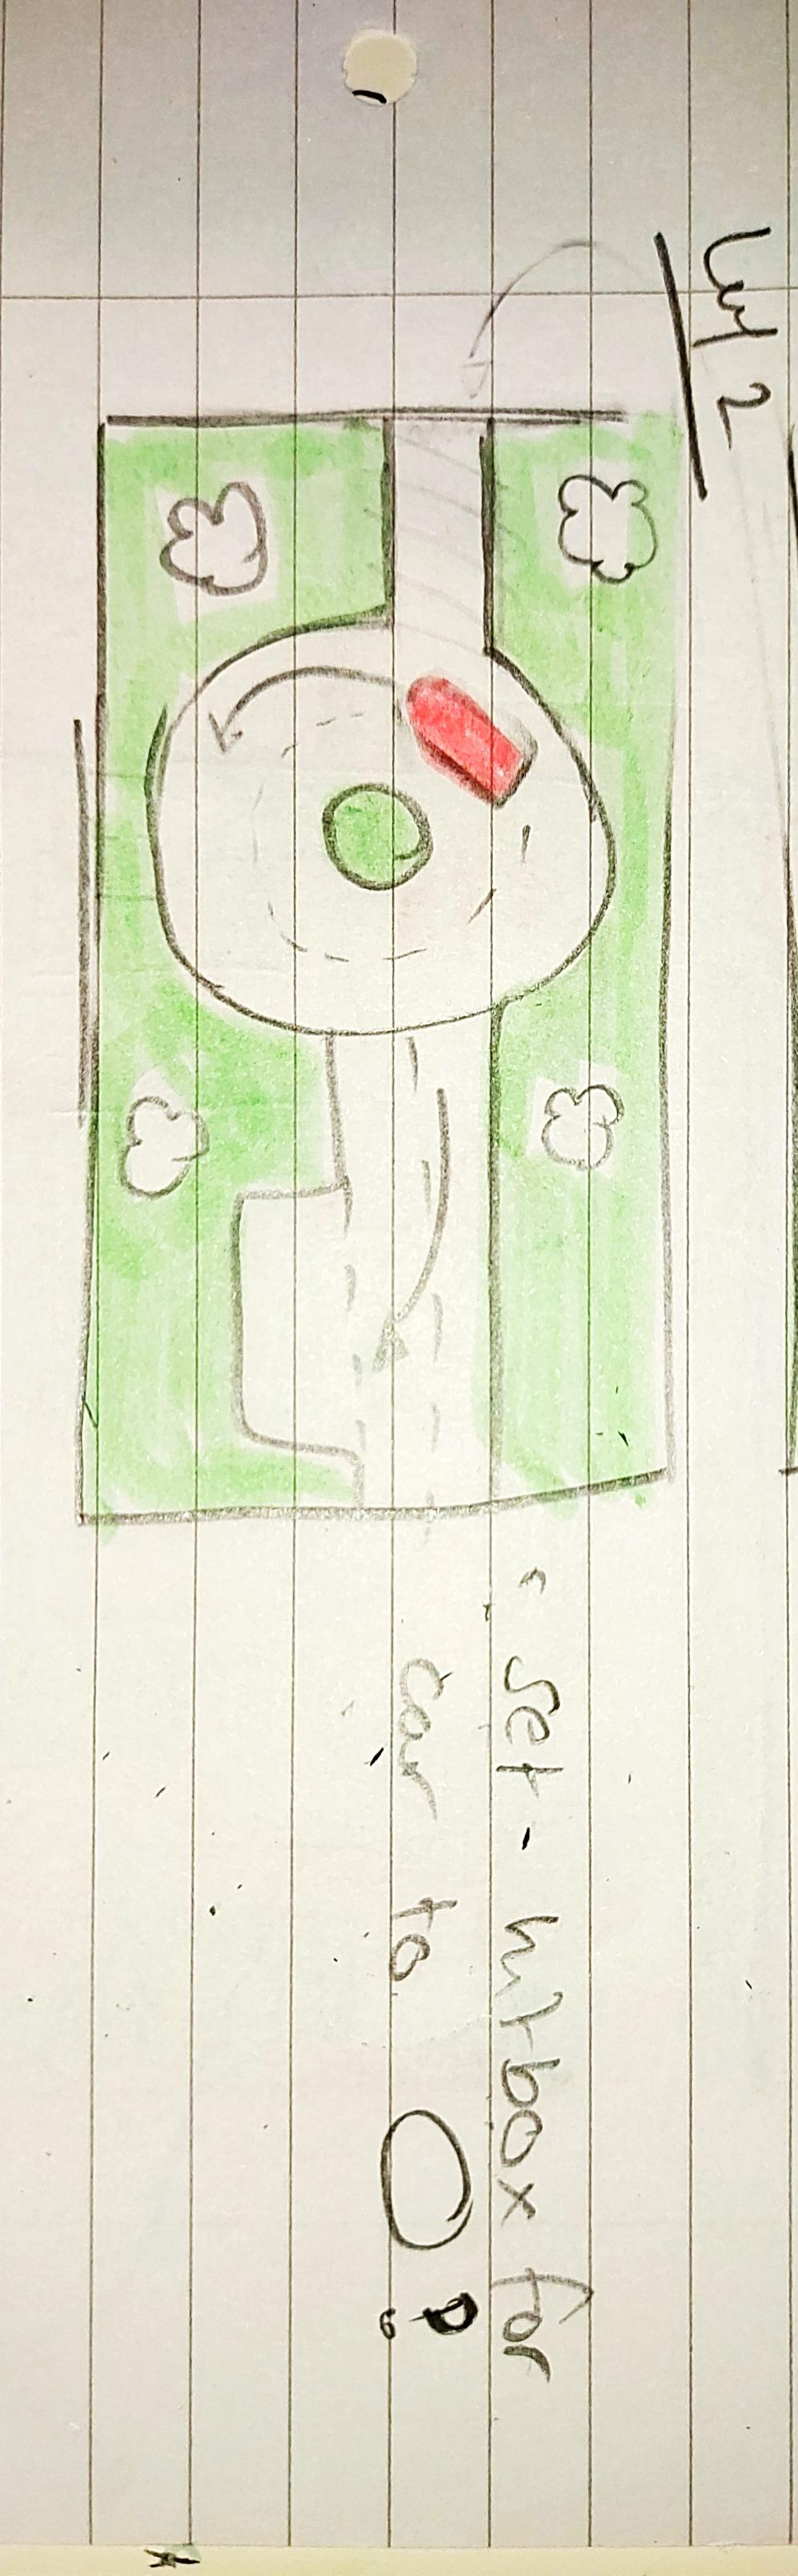 Lvl 2
set - hitbox for
car to O